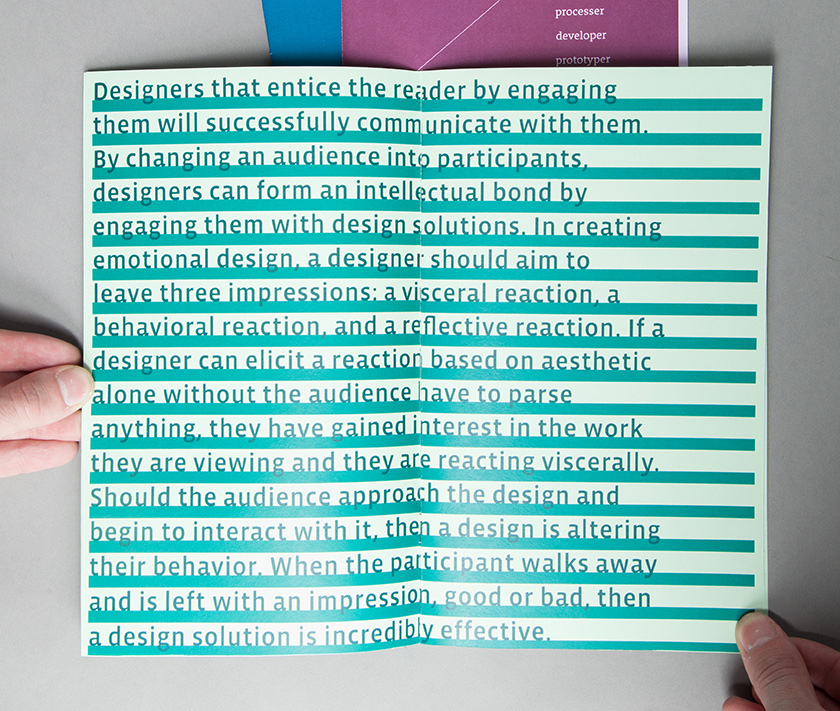 processer
developer
prototyper
Designers that entice the reader by engaging
them will successfully communicate with them.
By changing an audience into participants,
designers can form an intellectual bond by
engaging them with design solutions. In creating
emotional design, a designer should aim to
leave three impressions: a visceral reaction, a
behavioral reaction, and a reflective reaction. If a
designer can elicit a reaction based on aesthetic
alone without the audience have to parse
anything, they have gained interest in the work
they are viewing and they are reacting viscerally.
Should the audience approach the design and
begin to interact with it, then a design is altering
their behavior. When the participant walks away
and is left with an impression, good or bad, then
a design solution is incredibly effective.